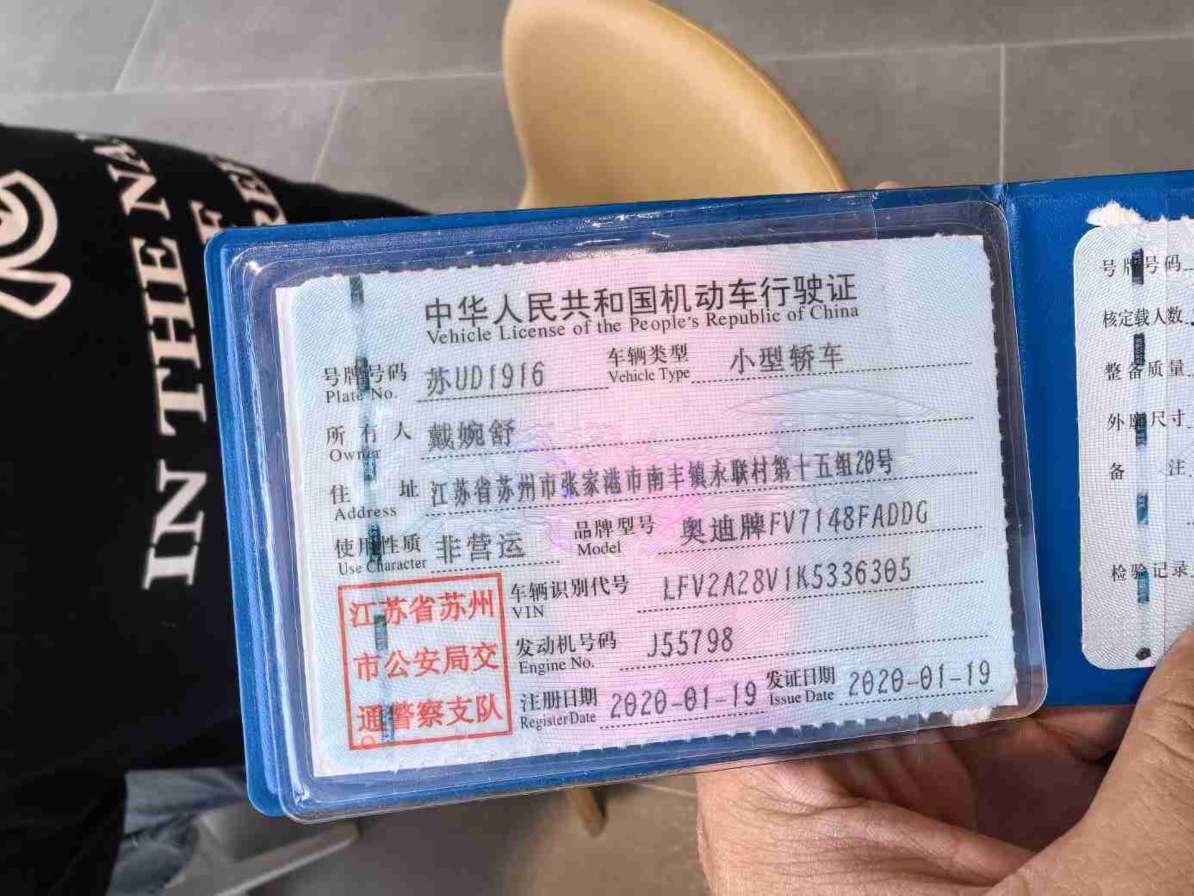 IN THE NA
中华人民共和国机动车行驶证
Vehicle License of the People's Republic of China
号牌号码 苏UD1916 车辆类型 小型轿车
Plate No. Vehicle Type
所有人 戴婉舒
Owner
住址 江苏省苏州市张家港市南丰镇永联村第十五组20号
Address
使用性质 非营运 品牌型号 奥迪牌FV7148FADDG
Use Character Model
江苏省苏州
市公安局交
通警察支队
车辆识别代号 LFV2A28V1K5336305
VIN
发动机号码 J55798
Engine No.
注册日期 2020-01-19 发证日期 2020-01-19
Register Date Issue Date
号牌号码
核定载人数
整备质量
外廓尺寸
备注
检验记录